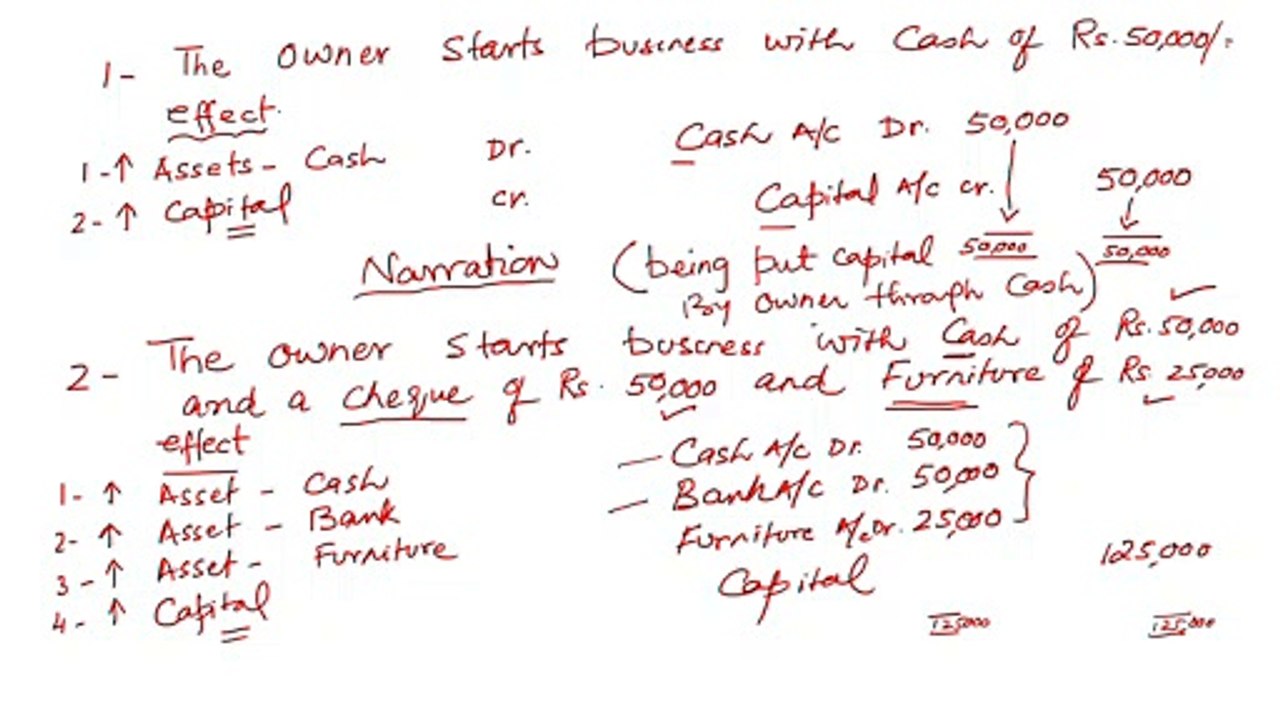 1- The owner starts business with Cash of Rs. 50,000/-
effect.
1-↑ Assets - Cash Dr. Cash A/c Dr. 50,000
2-↑ Capital cr. Capital A/c cr. 50,000
50,000 50,000
Narration (being put capital
By owner through Cash)
2- The owner starts business with Cash of Rs. 50,000
and a cheque of Rs. 50,000 and Furniture of Rs 25,000
effect
1- ↑ Asset - Cash Cash A/c Dr. 50,000
2- ↑ Asset - Bank Bank A/c Dr. 50,000
3 - ↑ Asset - Furniture Furniture A/c Dr. 25,000
4- ↑ Capital Capital 125,000
125000 125,000